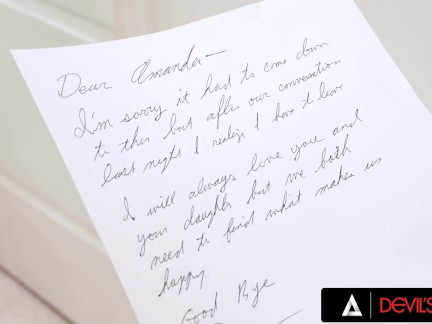 Dear Amanda—
I'm sorry it had to come down
to this but after our conversation
last night I realize I have to leave.
I will always love you and
your daughter but we both
need to find what makes us
happy.
Good Bye
A
DEVIL'S